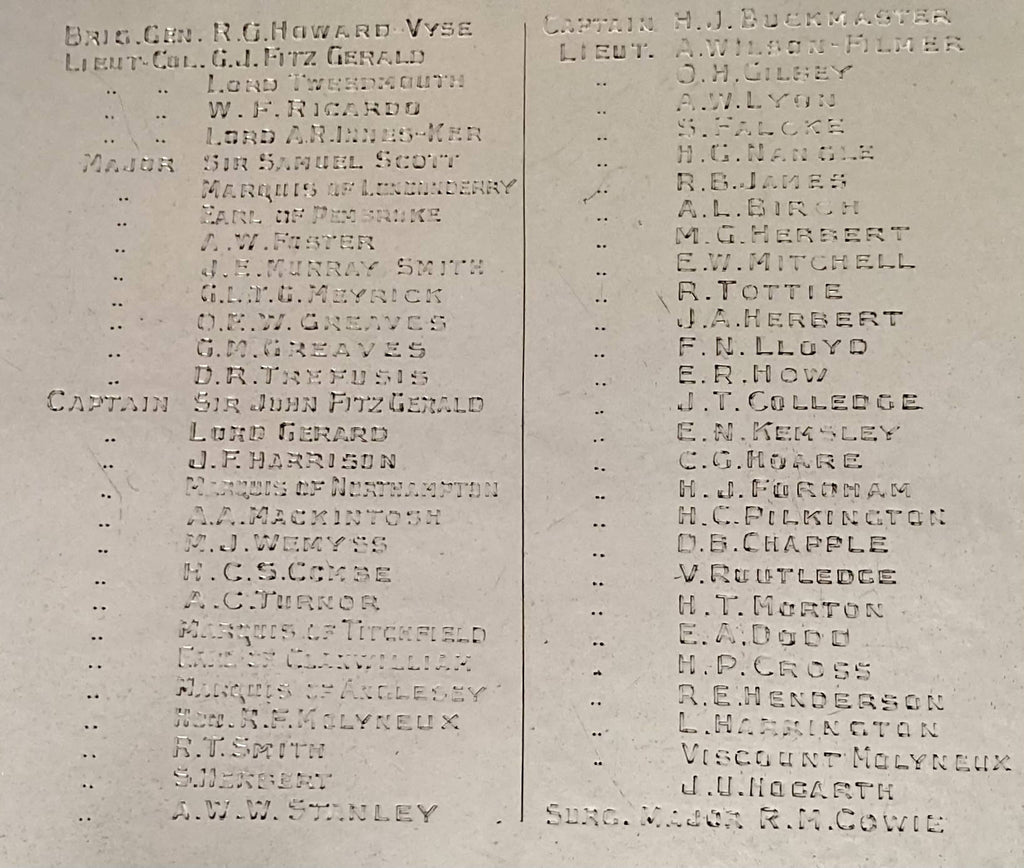 BRIG.GEN. R.G.HOWARD-VYSE
LIEUT-COL. G.J.FITZ GERALD
" " LORD TWEEDMOUTH
" " W.F.RICARDO
" " LORD A.R.INNES-KER
MAJOR SIR SAMUEL SCOTT
" MARQUIS OF LONDONDERRY
" EARL OF PEMBROKE
" A.W.FOSTER
" J.E.MURRAY SMITH
" G.L.T.G.MEYRICK
" O.E.W.GREAVES
" G.M.GREAVES
" D.R.TREFUSIS
CAPTAIN SIR JOHN FITZGERALD
" LORD GERARD
" J.F.HARRISON
" MARQUIS OF NORTHAMPTON
" A.A.MACKINTOSH
" M.J.WEMYSS
" H.C.S.COMBE
" A.C.TURNOR
" MARQUIS OF TITCHFIELD
" EARL OF CLANWILLIAM
" MARQUIS OF ANGLESEY
" HON.R.F.MOLYNEUX
" R.T.SMITH
" S.HERBERT
" A.W.W.STANLEY
CAPTAIN H.J.BUCKMASTER
LIEUT. A.WILSON-FILMER
" O.H.GILBEY
" A.W.LYON
" S.FALCKE
" H.G.NANGLE
" R.B.JAMES
" A.L.BIRCH
" M.G.HERBERT
" E.W.MITCHELL
" R.TOTTIE
" J.A.HERBERT
" F.N.LLOYD
" E.R.HOW
" J.T.COLLEDGE
" E.N.KEMSLEY
" C.G.HOARE
" H.J.FORDHAM
" H.C.PILKINGTON
" D.B.CHAPPLE
" V.ROUTLEDGE
" H.T.MORTON
" E.A.DODD
" H.P.CROSS
" R.E.HENDERSON
" L.HARRINGTON
" VISCOUNT MOLYNEUX
J.U.HOGARTH
SURG. MAJOR R.M.COWIE